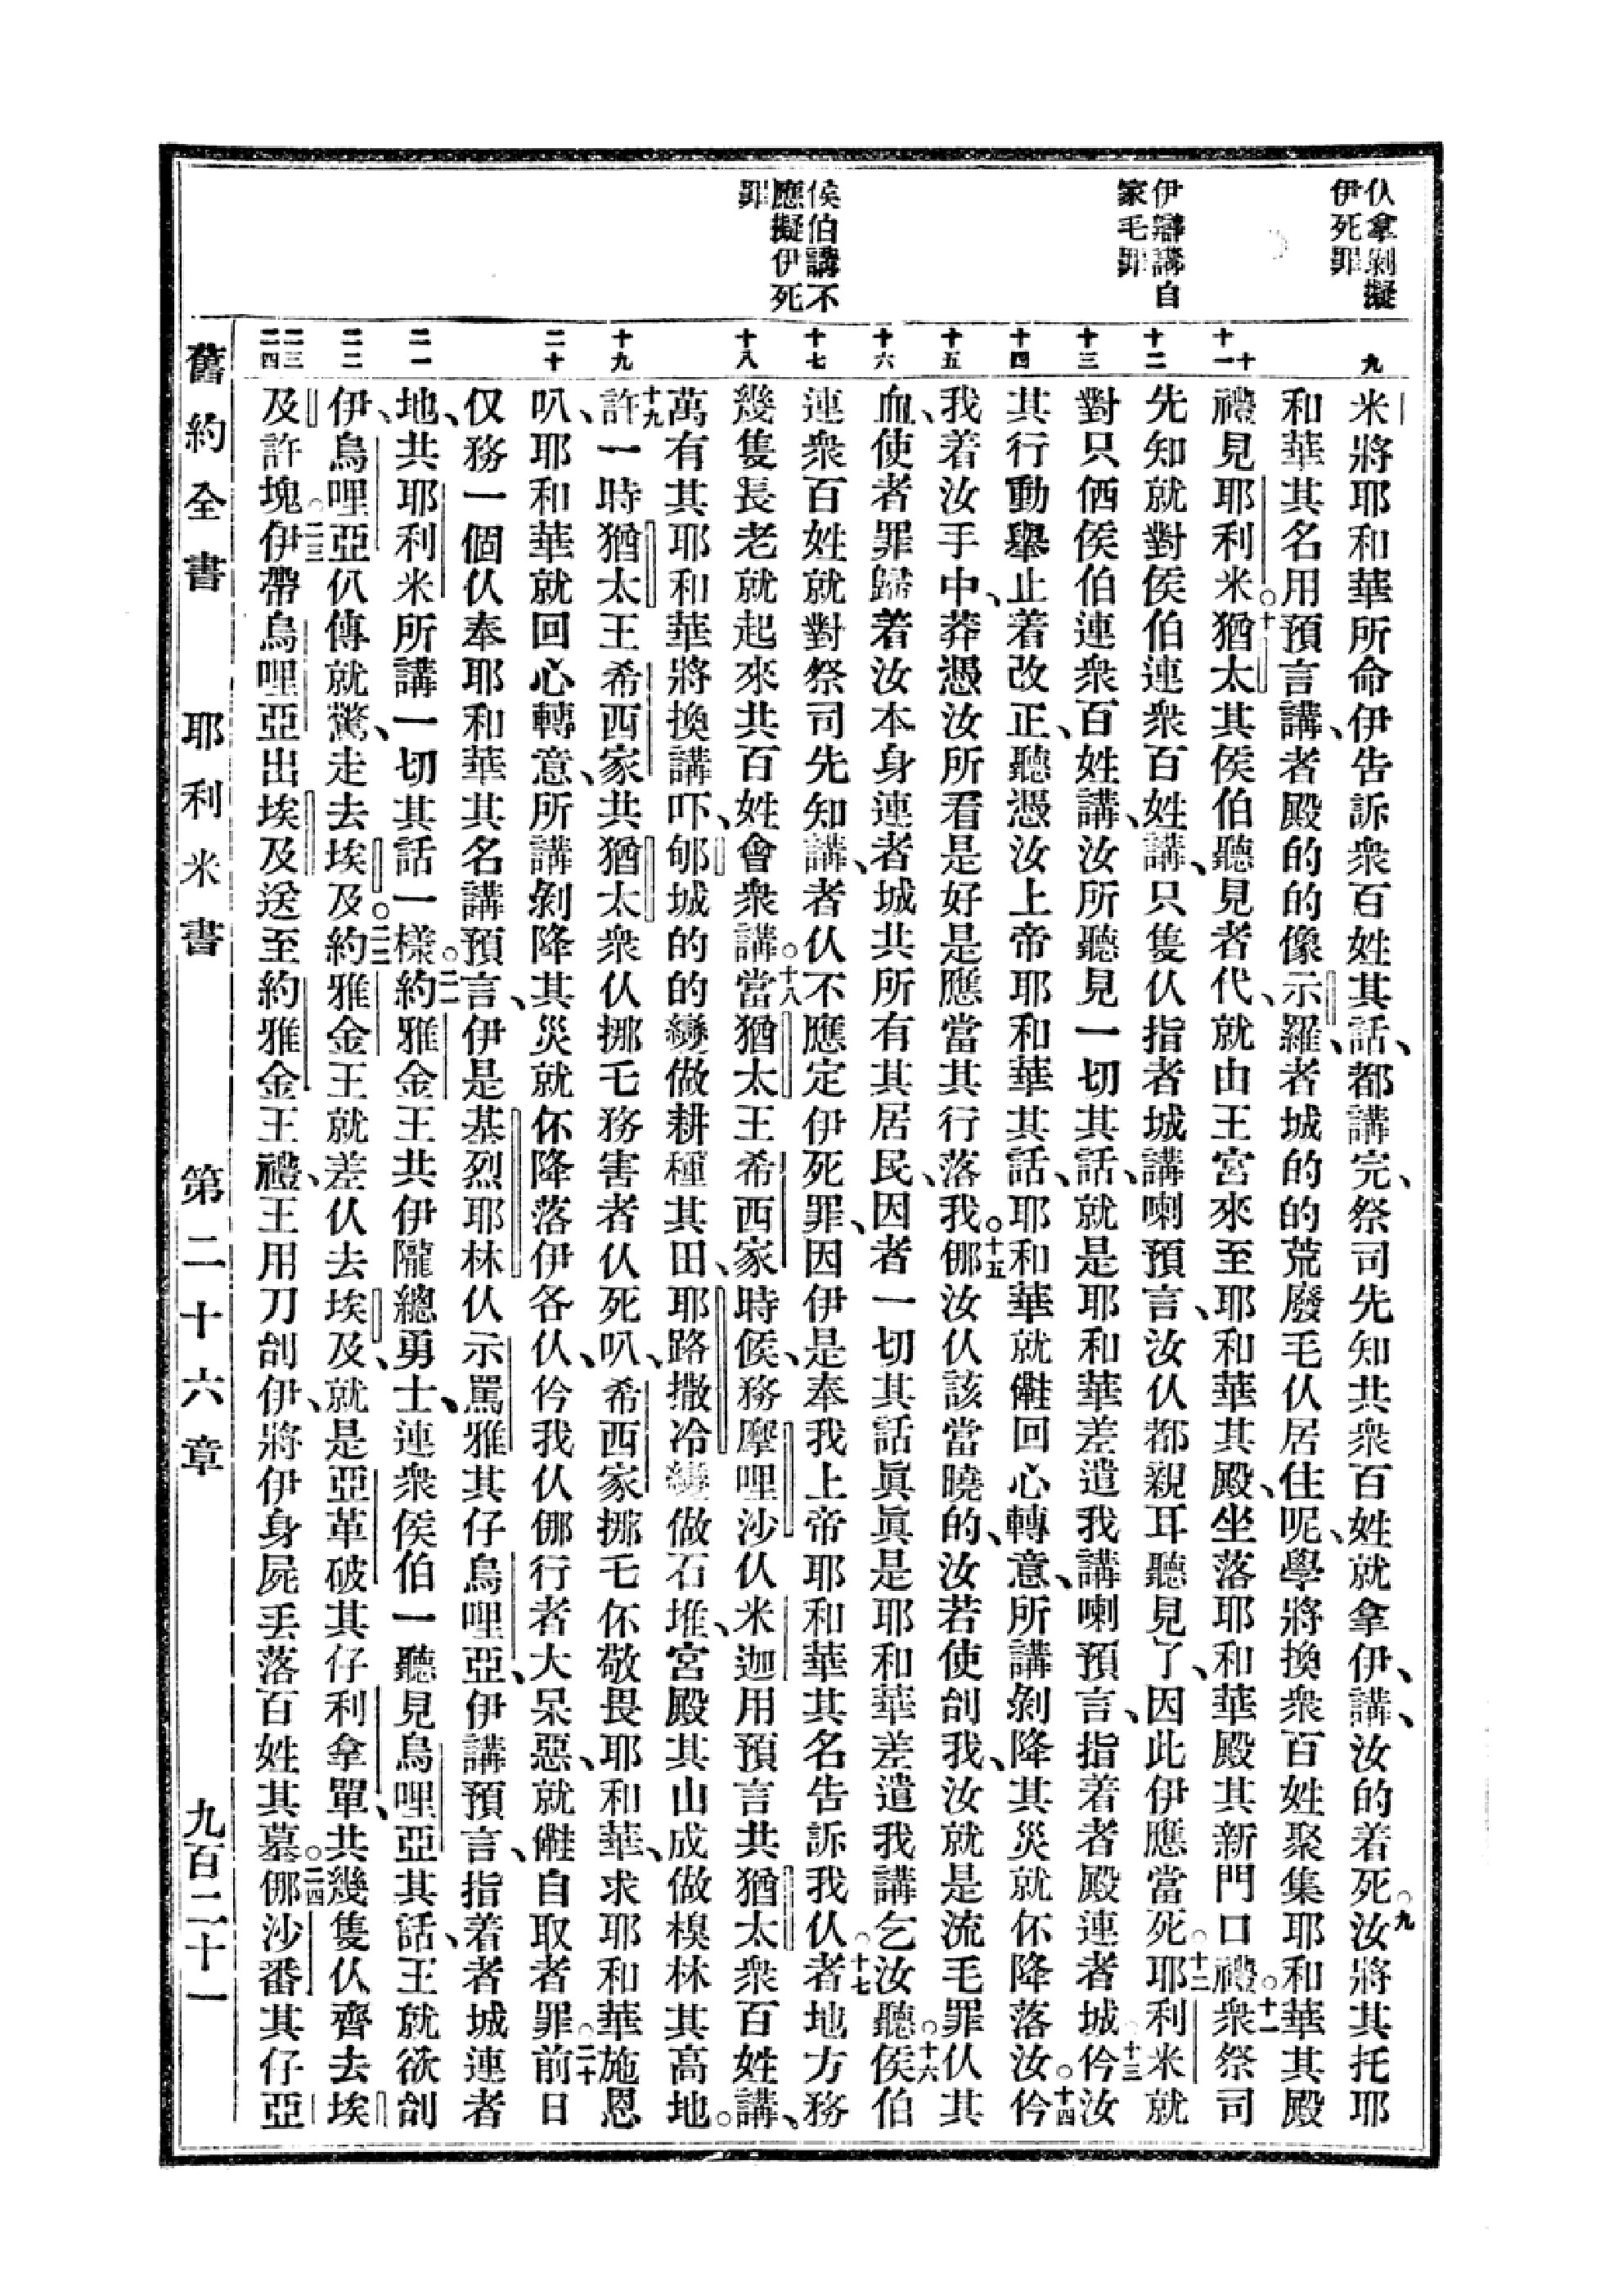 仈拿剝擬
伊死罪
伊辯講自
家毛罪
侯伯講不
應擬伊死
罪
九
十
十一
十二
十三
十四
十五
十六
十七
十八
十九
二十
二一
二二
二三
二四
米將耶和華所命伊告訴衆百姓其話、都講完、祭司先知共衆百姓就拿伊、講、汝的着死。九汝將其托耶
和華其名用預言講、者殿的的像示羅、者城的的荒廢毛仈居住呢、學將換衆百姓聚集耶和華其殿
禮見耶利米。十猶太其侯伯聽見者代、就由王宮來至耶和華其殿、坐落耶和華殿其新門口禮。十一衆祭司
先知就對侯伯連衆百姓講、只隻仈指者城講喇預言、汝仈都親耳聽見了、因此伊應當死。十二耶利米就
對只伵侯伯連衆百姓講、汝所聽見一切其話、就是耶和華差遣我講喇預言、指着者殿連者城。十三仱汝
其行動舉止着改正、聽憑汝上帝耶和華其話、耶和華就㒕回心轉意、所講剝降其災就伓降落汝。十四仱
我着汝手中、莽憑汝所看是好是應當其行落我。十五㑚汝仈該當曉的、汝若使刣我、汝就是流毛罪仈其
血、使者罪歸着汝本身連者城共所有其居民、因者一切其話眞眞是耶和華差遣我講乞汝聽。十六侯伯
連衆百姓就對祭司先知講、者仈不應定伊死罪、因伊是奉我上帝耶和華其名告訴我仈。十七者地方務
幾隻長老就起來共百姓會衆講。十八當猶太王希西家時候、務摩哩沙仈米迦用預言共猶太衆百姓講、
萬有其耶和華將換講吓、郇城的的變做耕種其田、耶路撒冷變做石堆、宮殿其山成做模林其高地。
十九許一時猶太王希西家共猶太衆仈挪乇務害者仈死叭、希西家挪毛伓敬畏耶和華、求耶和華施恩
叭、耶和華就回心轉意、所講剝降其災就伓降落伊各仈、仱我仈㑚行者大呆惡、就㒕自取者罪。二十前日
仅務一個仈奉耶和華其名講預言、伊是基烈耶林仈示罵雅其仔烏哩亞、伊講預言、指着者城連者
地、共耶利米所講一切其話一樣。二一約雅金王共伊隴總勇士、連衆侯伯一聽見烏哩亞其話、王就欲刣
伊、烏哩亞仈傳就驚、走去埃及。二二約雅金王就差仈去埃及、就是亞革破其仔利拿單、共幾隻仈齊去埃
及許塊。二三伊帶烏哩亞出埃及送至約雅金王禮、王用刀刣伊、將伊身屍丟落百姓其墓。二四㑚沙番其仔亞
舊約全書　耶利米書　第二十六章　九百二十一